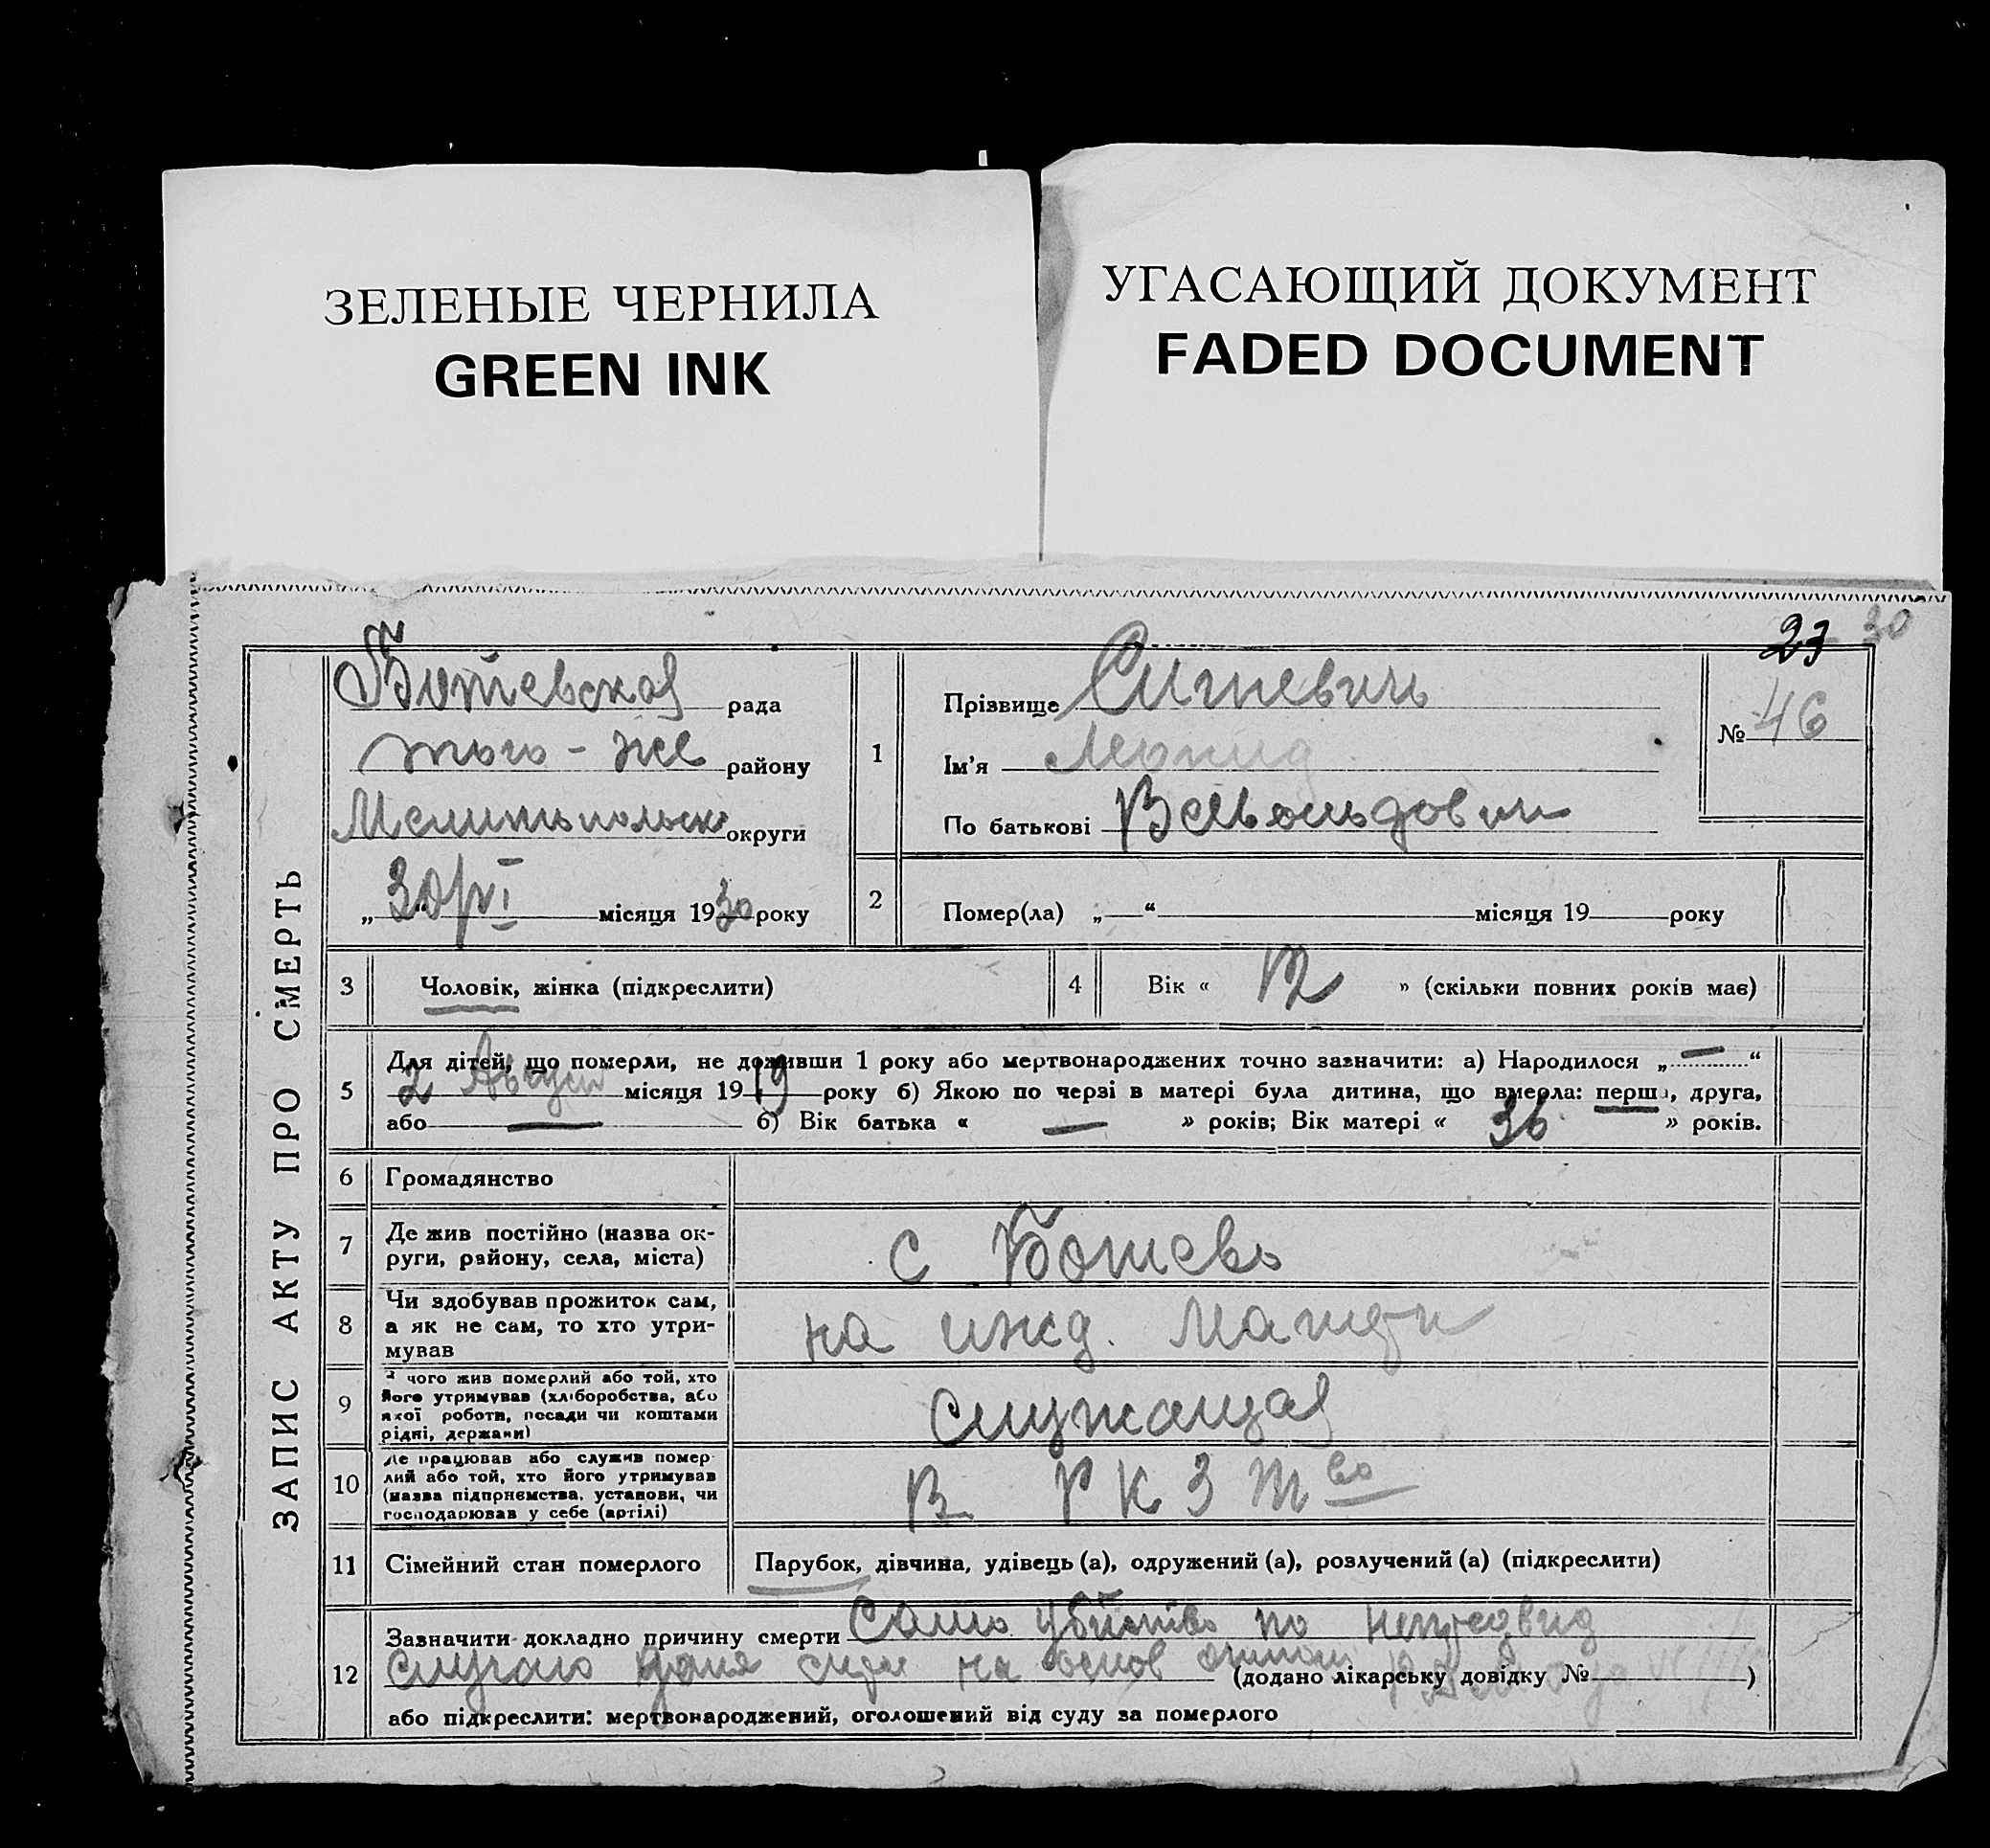 ЗЕЛЕНЫЕ ЧЕРНИЛА
GREEN INK
УГАСАЮЩИЙ ДОКУМЕНТ
FADED DOCUMENT
23 30
ЗАПИС АКТУ ПРО СМЕРТЬ
Ботевская рада
того-же району
округи
„ місяця 1930 року
1
Прізвище
Ім'я Леонид
По батькові
№ 46
2
Помер(ла) „ “ місяця 19 року
3
Чоловік, жінка (підкреслити)
4
Вік « » (скільки повних років має)
5
Для дітей, що померли, не доживши 1 року або мертвонароджених точно зазначити: а) Народилося „ — “
2 Август місяця 1919 року б) Якою по черзі в матері була дитина, що вмерла: перша, друга,
або — б) Вік батька « — » років; Вік матері « 36 » років.
6
Громадянство
7
Де жив постійно (назва ок-
руги, району, села, міста)
с Ботево
8
Чи здобував прожиток сам,
а як не сам, то хто утри-
мував
на ижд. матери
9
З чого жив померлий або той, хто
його утримував (хліборобства, або
якої роботи, посади чи коштами
рідні, держави)
служащая
10
Де працював або служив помер-
лий або той, хто його утримував
(назва підприємства, установи, чи
господарював у себе (артілі)
в РКЗ Тво
11
Сімейний стан померлого
Парубок, дівчина, удівець (а), одружений (а), розлучений (а) (підкреслити)
12
Зазначити докладно причину смерти Само убийство по непредвид
случаю на основ (додано лікарську довідку № )
або підкреслити: мертвонароджений, оголошений від суду за померлого